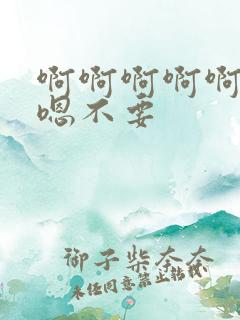 啊啊啊啊啊
嗯不要
御子柴奈奈
未经同意禁止转载